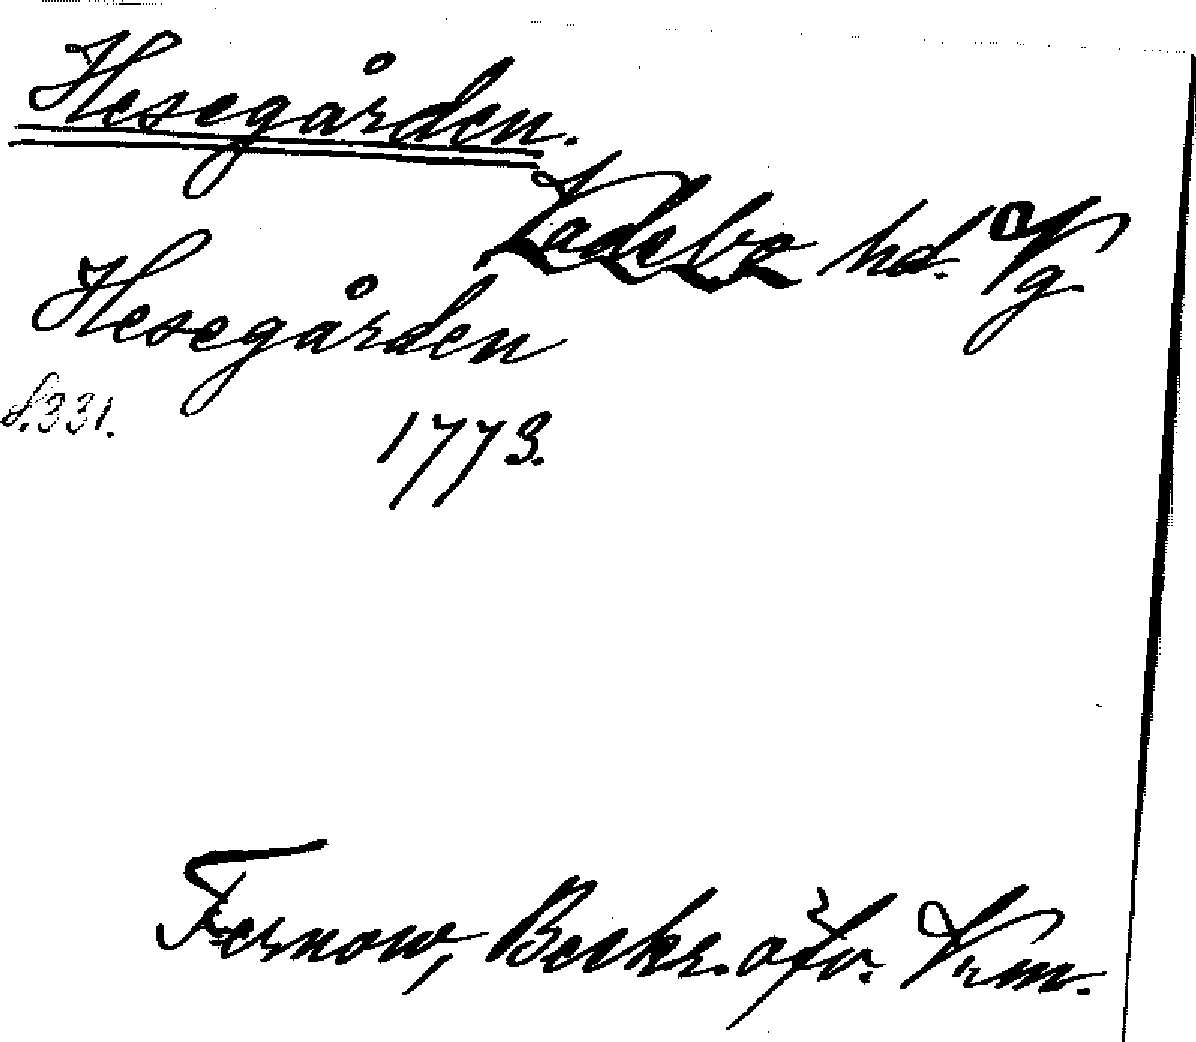 Hesegården.
Kadsbo hd. Vg.
Hesegården
s. 331.
1773.
Fernow, Beskr. öfv. Vrm.